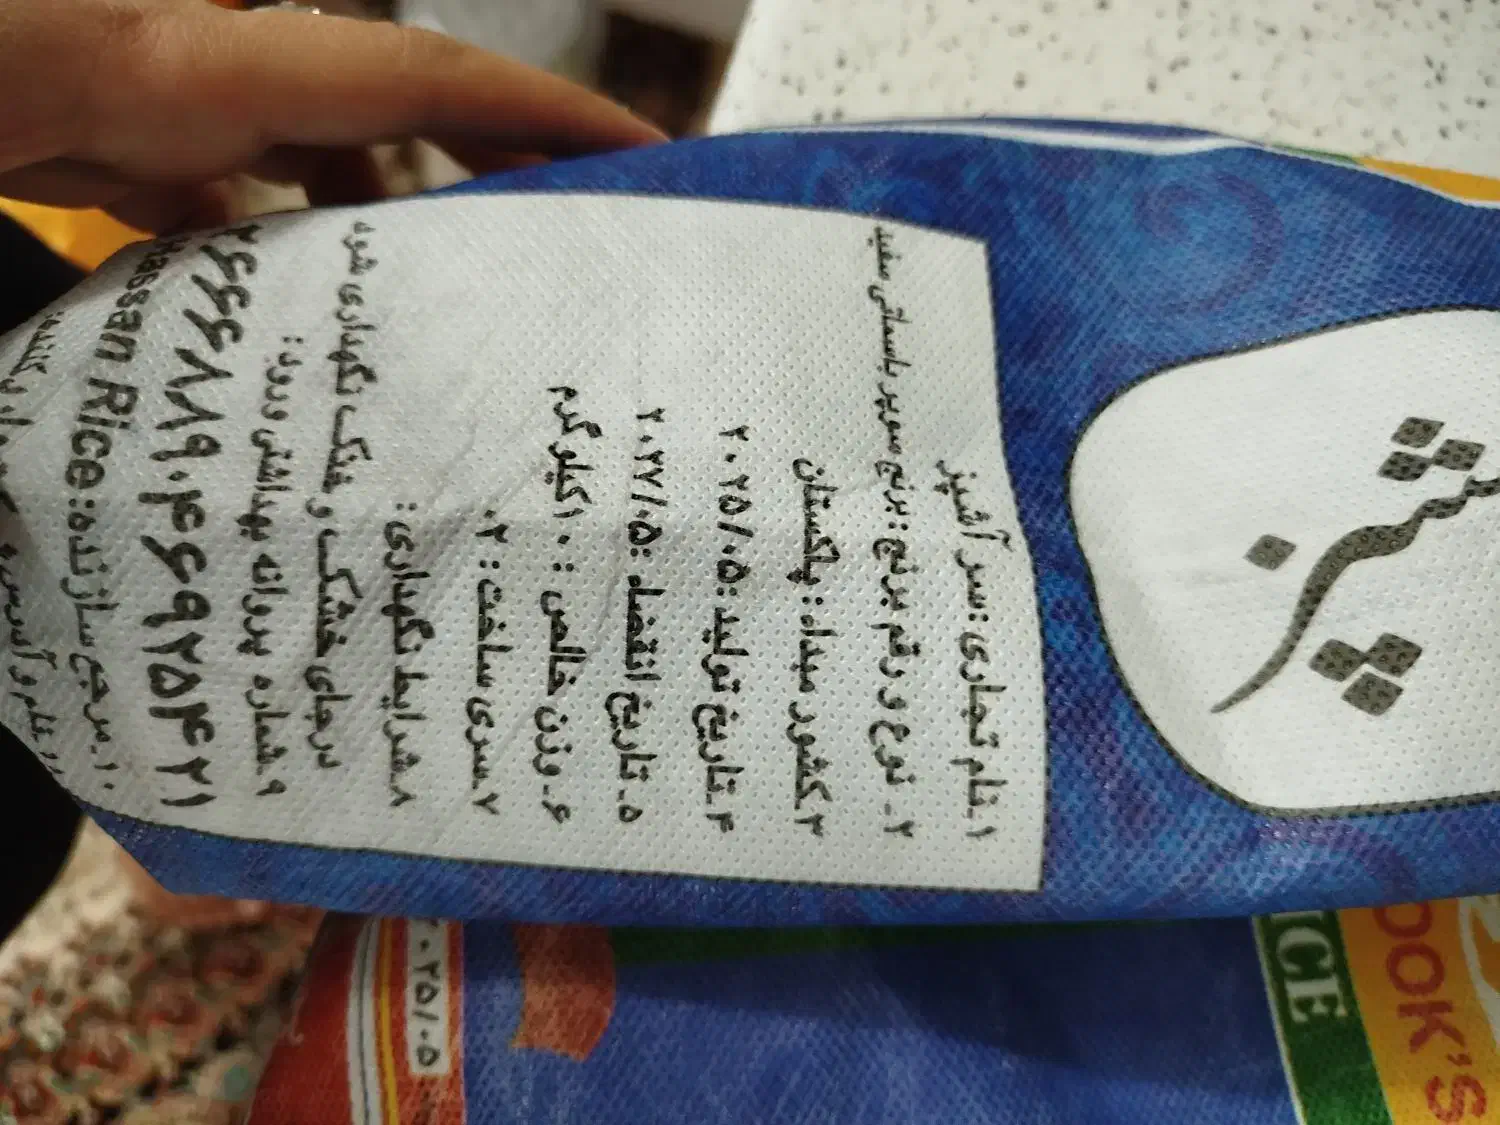 ۱_نام تجاری: سرآشپز
۲_ نوع و رقم برنج: برنج سوپر باسماتی سفید
۳_کشور مبداء: پاکستان
۴_تاریخ تولید: ۲۰۲۵/۰۵
۵_ تاریخ انقضاء: ۲۰۲۷/۰۵
۶_ وزن خالص: ۱۰کیلوگرم
۷_سری ساخت: ۰۲
۸_شرایط نگهداری:
درجای خشک و خنک نگهداری شود
۹_شماره پروانه بهداشتی ورود:
۱۰_مرجع سازنده: Hassan Rice
سرآشپز
۲۰۲۵/۰۵
ICE
OOK'S